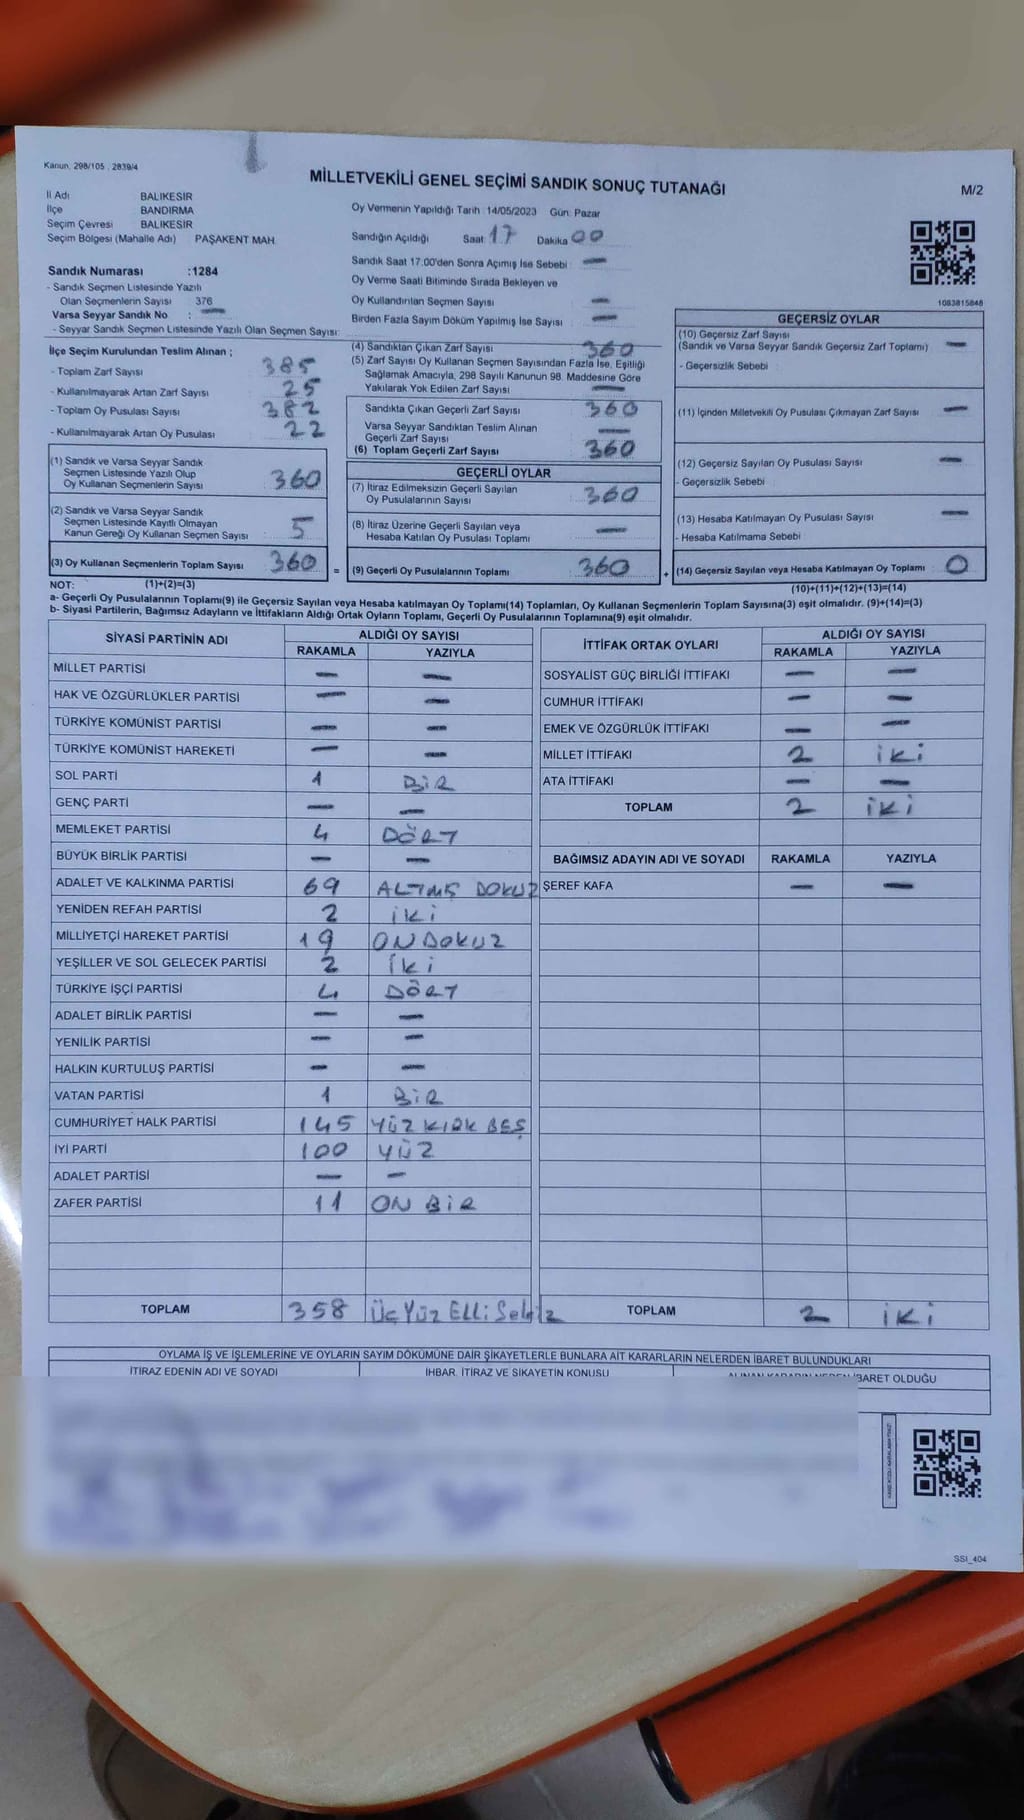 Kanun, 298/105 , 2839/4
MİLLETVEKİLİ GENEL SEÇİMİ SANDIK SONUÇ TUTANAĞI
M/2
İl Adı BALIKESİR
İlçe BANDIRMA
Seçim Çevresi BALIKESİR
Seçim Bölgesi (Mahalle Adı) PAŞAKENT MAH.
Oy Vermenin Yapıldığı Tarih : 14/05/2023 Gün: Pazar
Sandığın Açıldığı Saat 17 Dakika 00
Sandık Saat 17:00'den Sonra Açımış İse Sebebi : —
Oy Verme Saati Bitiminde Sırada Bekleyen ve
Oy Kullandırılan Seçmen Sayısı —
Birden Fazla Sayım Döküm Yapılmış İse Sayısı —
1083815848
Sandık Numarası :1284
- Sandık Seçmen Listesinde Yazılı
Olan Seçmenlerin Sayısı 376
Varsa Seyyar Sandık No : —
- Seyyar Sandık Seçmen Listesinde Yazılı Olan Seçmen Sayısı:
İlçe Seçim Kurulundan Teslim Alınan ;
- Toplam Zarf Sayısı 385
- Kullanılmayarak Artan Zarf Sayısı 25
- Toplam Oy Pusulası Sayısı 382
- Kullanılmayarak Artan Oy Pusulası 22
(1) Sandık ve Varsa Seyyar Sandık
Seçmen Listesinde Yazılı Olup
Oy Kullanan Seçmenlerin Sayısı 360
(2) Sandık ve Varsa Seyyar Sandık
Seçmen Listesinde Kayıtlı Olmayan
Kanun Gereği Oy Kullanan Seçmen Sayısı 5
(3) Oy Kullanan Seçmenlerin Toplam Sayısı 360 =
(4) Sandıktan Çıkan Zarf Sayısı 360
(5) Zarf Sayısı Oy Kullanan Seçmen Sayısından Fazla İse, Eşitliği
Sağlamak Amacıyla, 298 Sayılı Kanunun 98. Maddesine Göre
Yakılarak Yok Edilen Zarf Sayısı —
Sandıkta Çıkan Geçerli Zarf Sayısı 360
Varsa Seyyar Sandıktan Teslim Alınan
Geçerli Zarf Sayısı —
(6) Toplam Geçerli Zarf Sayısı 360
GEÇERLİ OYLAR
(7) İtiraz Edilmeksizin Geçerli Sayılan
Oy Pusulalarının Sayısı 360
(8) İtiraz Üzerine Geçerli Sayılan veya
Hesaba Katılan Oy Pusulası Toplamı —
(9) Geçerli Oy Pusulalarının Toplamı 360 +
GEÇERSİZ OYLAR
(10) Geçersiz Zarf Sayısı
(Sandık ve Varsa Seyyar Sandık Geçersiz Zarf Toplamı) —
- Geçersizlik Sebebi :
(11) İçinden Milletvekili Oy Pusulası Çıkmayan Zarf Sayısı —
(12) Geçersiz Sayılan Oy Pusulası Sayısı —
- Geçersizlik Sebebi :
(13) Hesaba Katılmayan Oy Pusulası Sayısı —
- Hesaba Katılmama Sebebi :
(14) Geçersiz Sayılan veya Hesaba Katılmayan Oy Toplamı 0
NOT: (1)+(2)=(3) (10)+(11)+(12)+(13)=(14)
a- Geçerli Oy Pusulalarının Toplamı(9) ile Geçersiz Sayılan veya Hesaba katılmayan Oy Toplamı(14) Toplamları, Oy Kullanan Seçmenlerin Toplam Sayısına(3) eşit olmalıdır. (9)+(14)=(3)
b- Siyasi Partilerin, Bağımsız Adayların ve İttifakların Aldığı Ortak Oyların Toplamı, Geçerli Oy Pusulalarının Toplamına(9) eşit olmalıdır.
SİYASİ PARTİNİN ADI ALDIĞI OY SAYISI
RAKAMLA YAZIYLA
MİLLET PARTİSİ — —
HAK VE ÖZGÜRLÜKLER PARTİSİ — —
TÜRKİYE KOMÜNİST PARTİSİ — —
TÜRKİYE KOMÜNİST HAREKETİ — —
SOL PARTİ 1 BİR
GENÇ PARTİ — —
MEMLEKET PARTİSİ 4 DÖRT
BÜYÜK BİRLİK PARTİSİ — —
ADALET VE KALKINMA PARTİSİ 69 ALTMIŞ DOKUZ
YENİDEN REFAH PARTİSİ 2 İKİ
MİLLİYETÇİ HAREKET PARTİSİ 19 ON DOKUZ
YEŞİLLER VE SOL GELECEK PARTİSİ 2 İki
TÜRKİYE İŞÇİ PARTİSİ 4 DÖRT
ADALET BİRLİK PARTİSİ — —
YENİLİK PARTİSİ — —
HALKIN KURTULUŞ PARTİSİ — —
VATAN PARTİSİ 1 BİR
CUMHURİYET HALK PARTİSİ 145 YÜZ KIRK BEŞ
İYİ PARTİ 100 YÜZ
ADALET PARTİSİ — —
ZAFER PARTİSİ 11 ON BİR
TOPLAM 358 Üç Yüz Elli Sekiz
İTTİFAK ORTAK OYLARI ALDIĞI OY SAYISI
RAKAMLA YAZIYLA
SOSYALİST GÜÇ BİRLİĞİ İTTİFAKI — —
CUMHUR İTTİFAKI — —
EMEK VE ÖZGÜRLÜK İTTİFAKI — —
MİLLET İTTİFAKI 2 iKi
ATA İTTİFAKI — —
TOPLAM 2 iKi
BAĞIMSIZ ADAYIN ADI VE SOYADI RAKAMLA YAZIYLA
ŞEREF KAFA — —
TOPLAM 2 iKi
OYLAMA İŞ VE İŞLEMLERİNE VE OYLARIN SAYIM DÖKÜMÜNE DAİR ŞİKAYETLERLE BUNLARA AİT KARARLARIN NELERDEN İBARET BULUNDUKLARI
İTİRAZ EDENİN ADI VE SOYADI İHBAR, İTİRAZ VE ŞİKAYETİN KONUSU ALINAN KARARIN NEDEN İBARET OLDUĞU
SSI_404